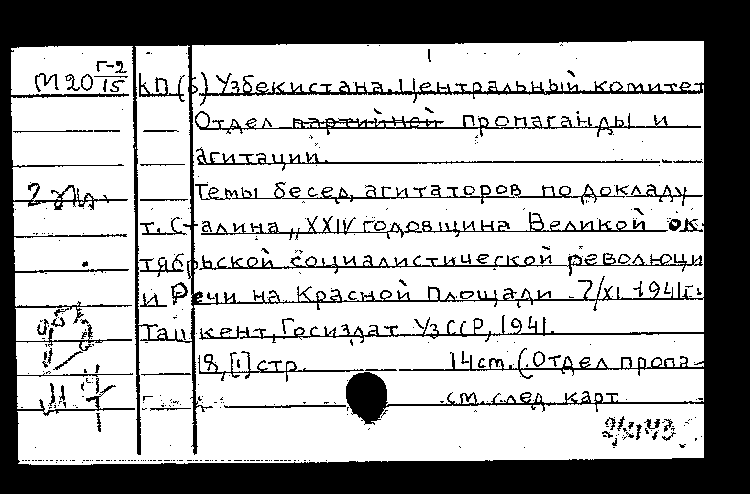 М20 Г-2/15 КП(б) Узбекистана. Центральный комитет
Отдел партийной пропаганды и
агитации.
2 экз. Темы бесед, агитаторов по докладу
т. Сталина „XXIV годовщина Великой ок-
тябрьской социалистической революци
и Речи на Красной Площади 7/XI 1941г.
Ташкент, Госиздат УзССР, 1941.
18, [1] стр. 14 см. (Отдел пропа-
см. след. карт
2/XI 43